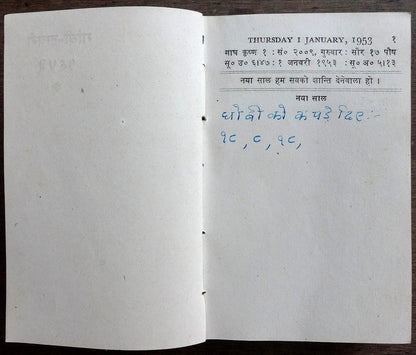 THURSDAY 1 JANUARY, 1953 १
माघ कृष्ण १ : सं० २००९, गुरुवार : सौर १७ पौष
सू० उ० ६।४७ : १ जनवरी १९५३ : सू० अ० ५।१३
नया साल हम सबको शान्ति देनेवाला हो ।
नया साल
धोबी को कपड़े दिए:-
१८, ८, १८,